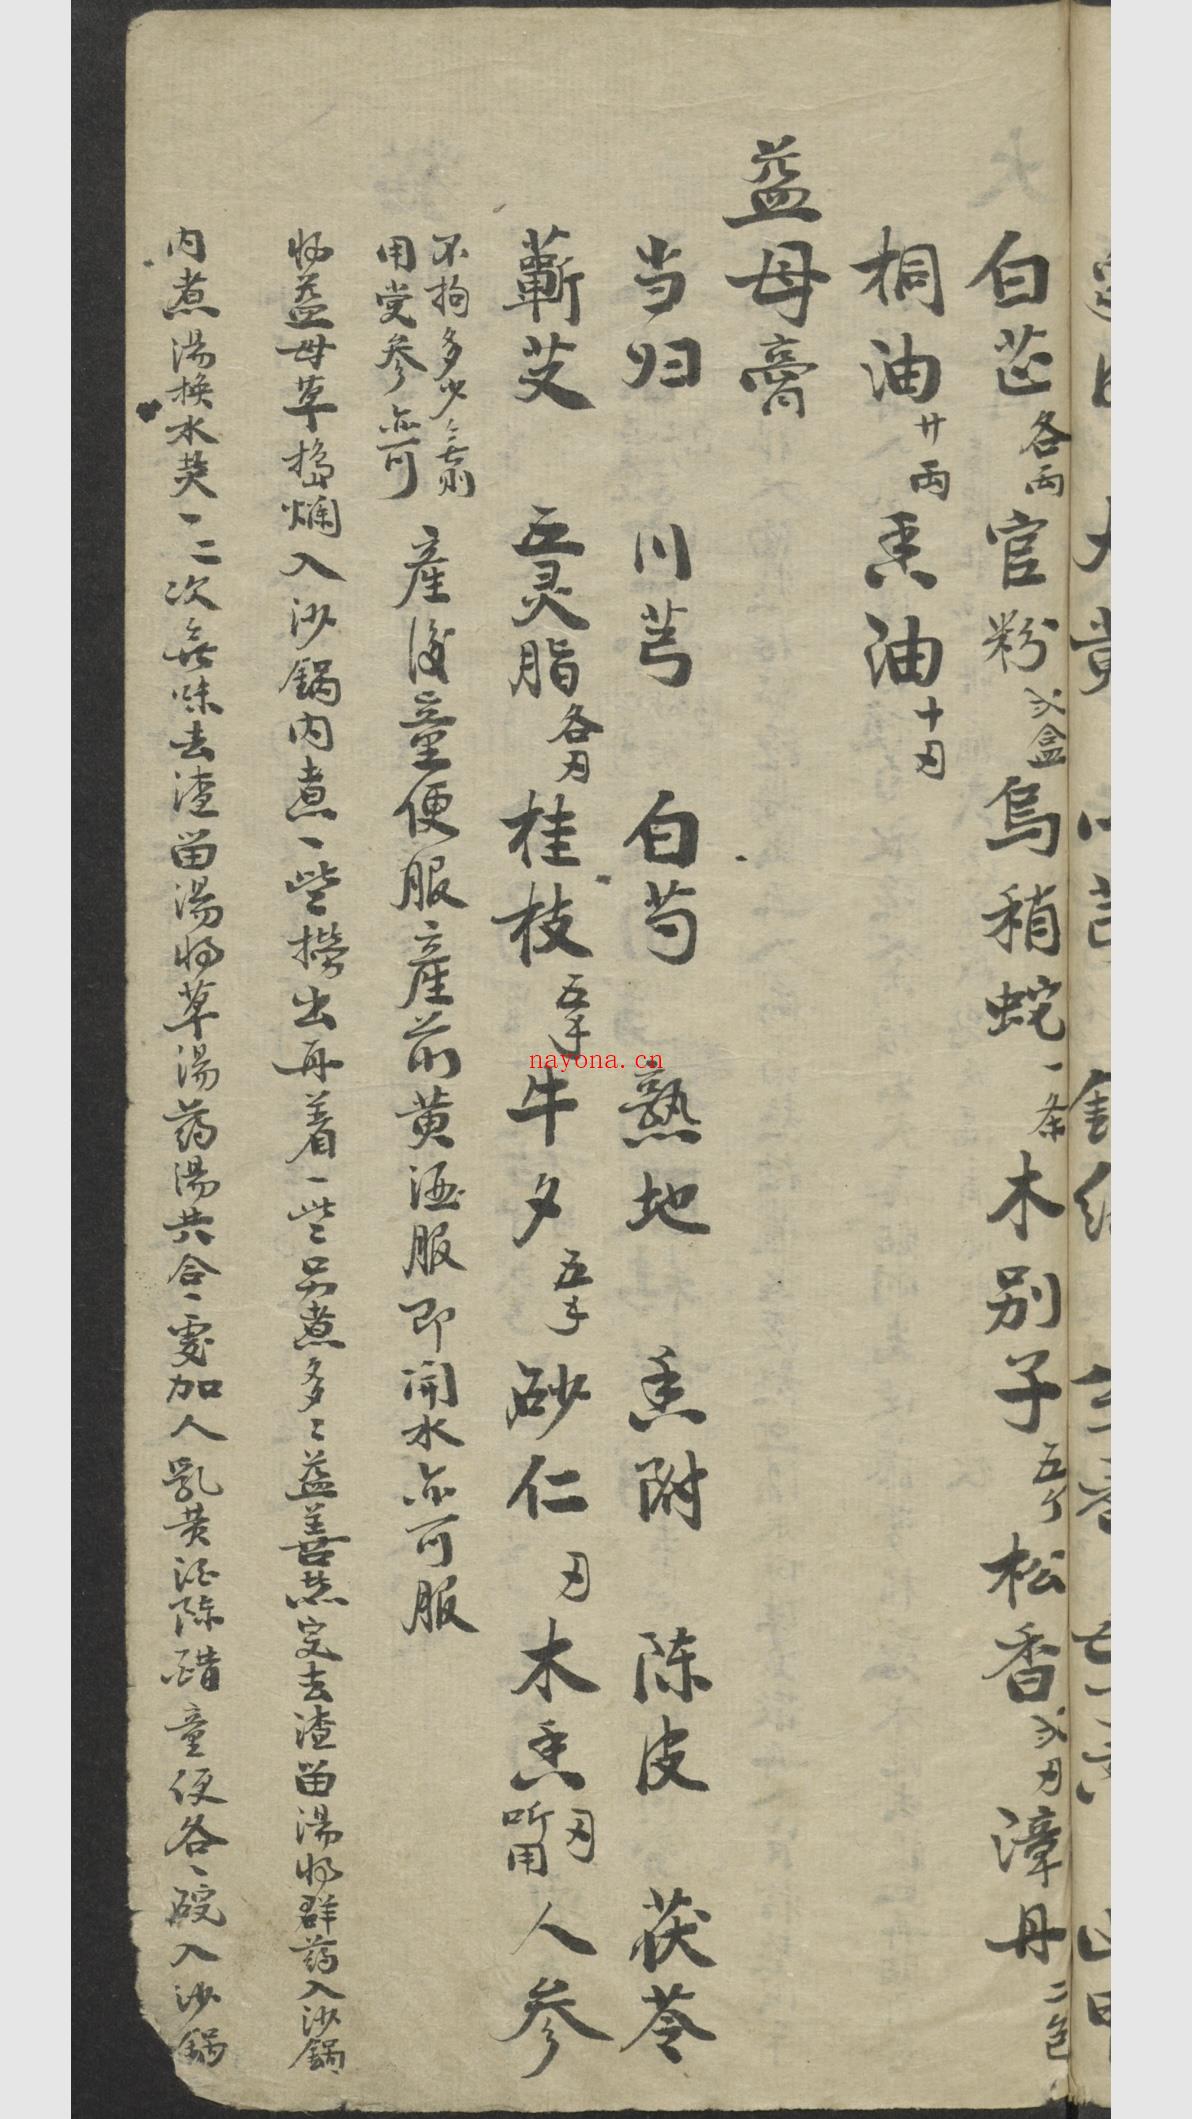 白芷各兩官粉弍盒烏稍蛇一条木别子五个松香弍刃漳丹二包
桐油廿兩香油十刃
益母膏
当归 川芎 白芍 熟地 香附 陈皮 茯苓
蘄艾 五灵脂各刃桂枝五手牛夕五手砂仁刃木香刃听用人参
不拘多少無則
用党参亦可
産後童便服産前黄酒服即開水亦可服
將益母草搗爛入沙鍋内煮一些撈出再着一些另煮多多益善煮完去渣留湯將群药入沙鍋
内煮湯换水煎一二次無味去渣留湯將草湯药湯共合一処加人乳黄酒陈醋童便各一碗入沙鍋
nayona.cn